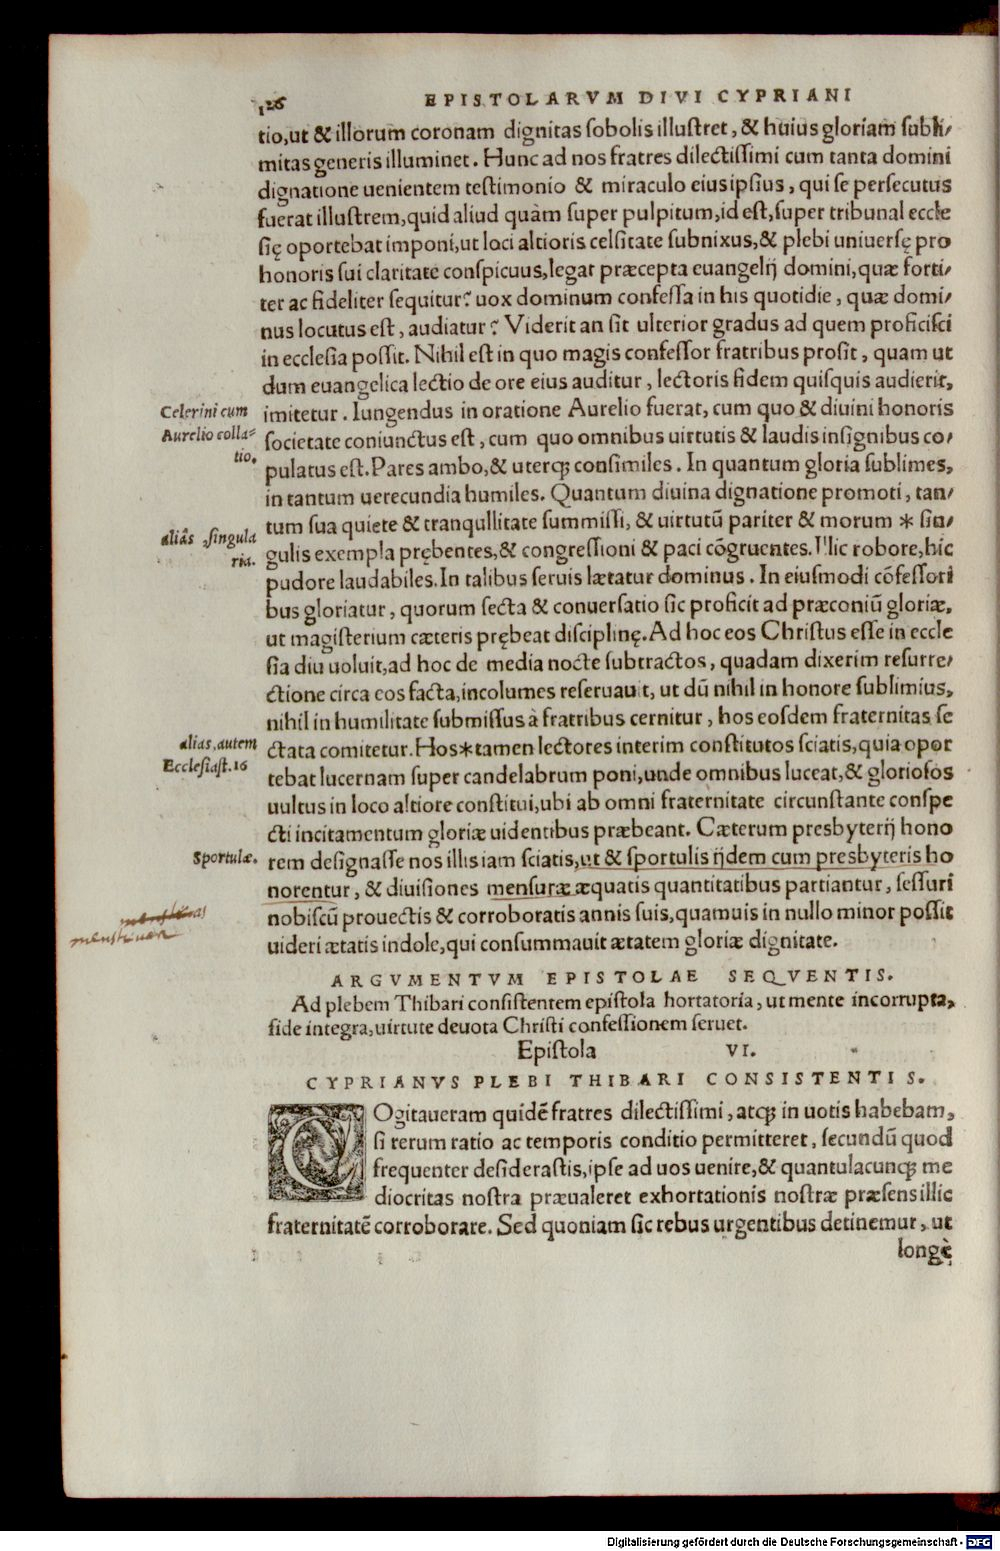 126 EPISTOLARVM DIVI CYPRIANI
tio,ut & illorum coronam dignitas sobolis illustret, & huius gloriam subli/
mitas generis illuminet. Hunc ad nos fratres dilectissimi cum tanta domini
dignatione uenientem testimonio & miraculo eius ipsius, qui se persecutus
fuerat illustrem,quid aliud quàm super pulpitum,id est,super tribunal eccle
się oportebat imponi,ut loci altioris celsitate subnixus,& plebi uniuersę pro
honoris sui claritate conspicuus,legat præcepta euangelij domini,quæ forti/
ter ac fideliter sequitur? uox dominum confessa in his quotidie, quæ domi/
nus locutus est, audiatur? Viderit an sit ulterior gradus ad quem proficisci
in ecclesia possit. Nihil est in quo magis confessor fratribus prosit, quam ut
dum euangelica lectio de ore eius auditur, lectoris fidem quisquis audierit,
Celerini cum
Aurelio colla=
tio.
imitetur. Iungendus in oratione Aurelio fuerat, cum quo & diuini honoris
societate coniunctus est, cum quo omnibus uirtutis & laudis insignibus co/
pulatus est. Pares ambo,& uterq; consimiles. In quantum gloria sublimes,
in tantum uerecundia humiles. Quantum diuina dignatione promoti, tan/
tum sua quiete & tranqullitate summissi, & uirtutū pariter & morum * sin/
aliâs ,singula
ria.
gulis exempla prębentes,& congressioni & paci cōgruentes. Illic robore,hic
pudore laudabiles. In talibus seruis lætatur dominus. In eiusmodi cōfessori
bus gloriatur, quorum secta & conuersatio sic proficit ad præconiū gloriæ,
ut magisterium cæteris prębeat disciplinę. Ad hoc eos Christus esse in eccle
sia diu uoluit,ad hoc de media nocte subtractos, quadam dixerim resurre/
ctione circa eos facta,incolumes reseruauit, ut dū nihil in honore sublimius,
nihil in humilitate submissus à fratribus cernitur, hos eosdem fraternitas se
alias, autem
Ecclesiast.16
ctata comitetur. Hos*tamen lectores interim constitutos sciatis,quia opor
tebat lucernam super candelabrum poni,unde omnibus luceat,& gloriosos
uultus in loco altiore constitui,ubi ab omni fraternitate circunstante conspe
cti incitamentum gloriæ uidentibus præbeant. Cæterum presbyterij hono
Sportulæ.
rem designasse nos illis iam sciatis,ut & sportulis ijdem cum presbyteris ho
norentur, & diuisiones mensuræ æquatis quantitatibus partiantur, sessuri
nobiscū prouectis & corroboratis annis suis,quamuis in nullo minor possit
uideri ætatis indole,qui consummauit ætatem gloriæ dignitate.
ARGVMENTVM EPISTOLAE SEQVENTIS.
Ad plebem Thibari consistentem epistola hortatoria, ut mente incorrupta,
fide integra,uirtute deuota Christi confessionem seruet.
Epistola VI.
CYPRIANVS PLEBI THIBARI CONSISTENTIS.
COgitaueram quidē fratres dilectissimi, atq; in uotis habebam,
si rerum ratio ac temporis conditio permitteret, secundū quod
frequenter desiderastis,ipse ad uos uenire,& quantulacunq; me
diocritas nostra præualeret exhortationis nostræ præsens illic
fraternitatē corroborare. Sed quoniam sic rebus urgentibus detinemur, ut
longè
Digitalisierung gefördert durch die Deutsche Forschungsgemeinschaft - DFG